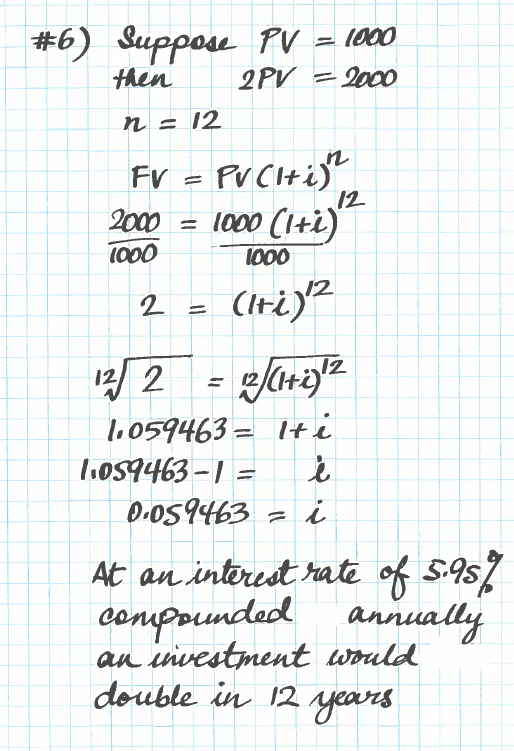 #6) Suppose PV = 1000
then 2PV = 2000
n = 12
FV = PV(1+i)^n
2000/1000 = 1000(1+i)^12/1000
2 = (1+i)^12
¹²√2 = ¹²√(1+i)^12
1.059463 = 1+i
1.059463-1 = i
0.059463 = i
At an interest rate of 5.95%
compounded annually
an investment would
double in 12 years